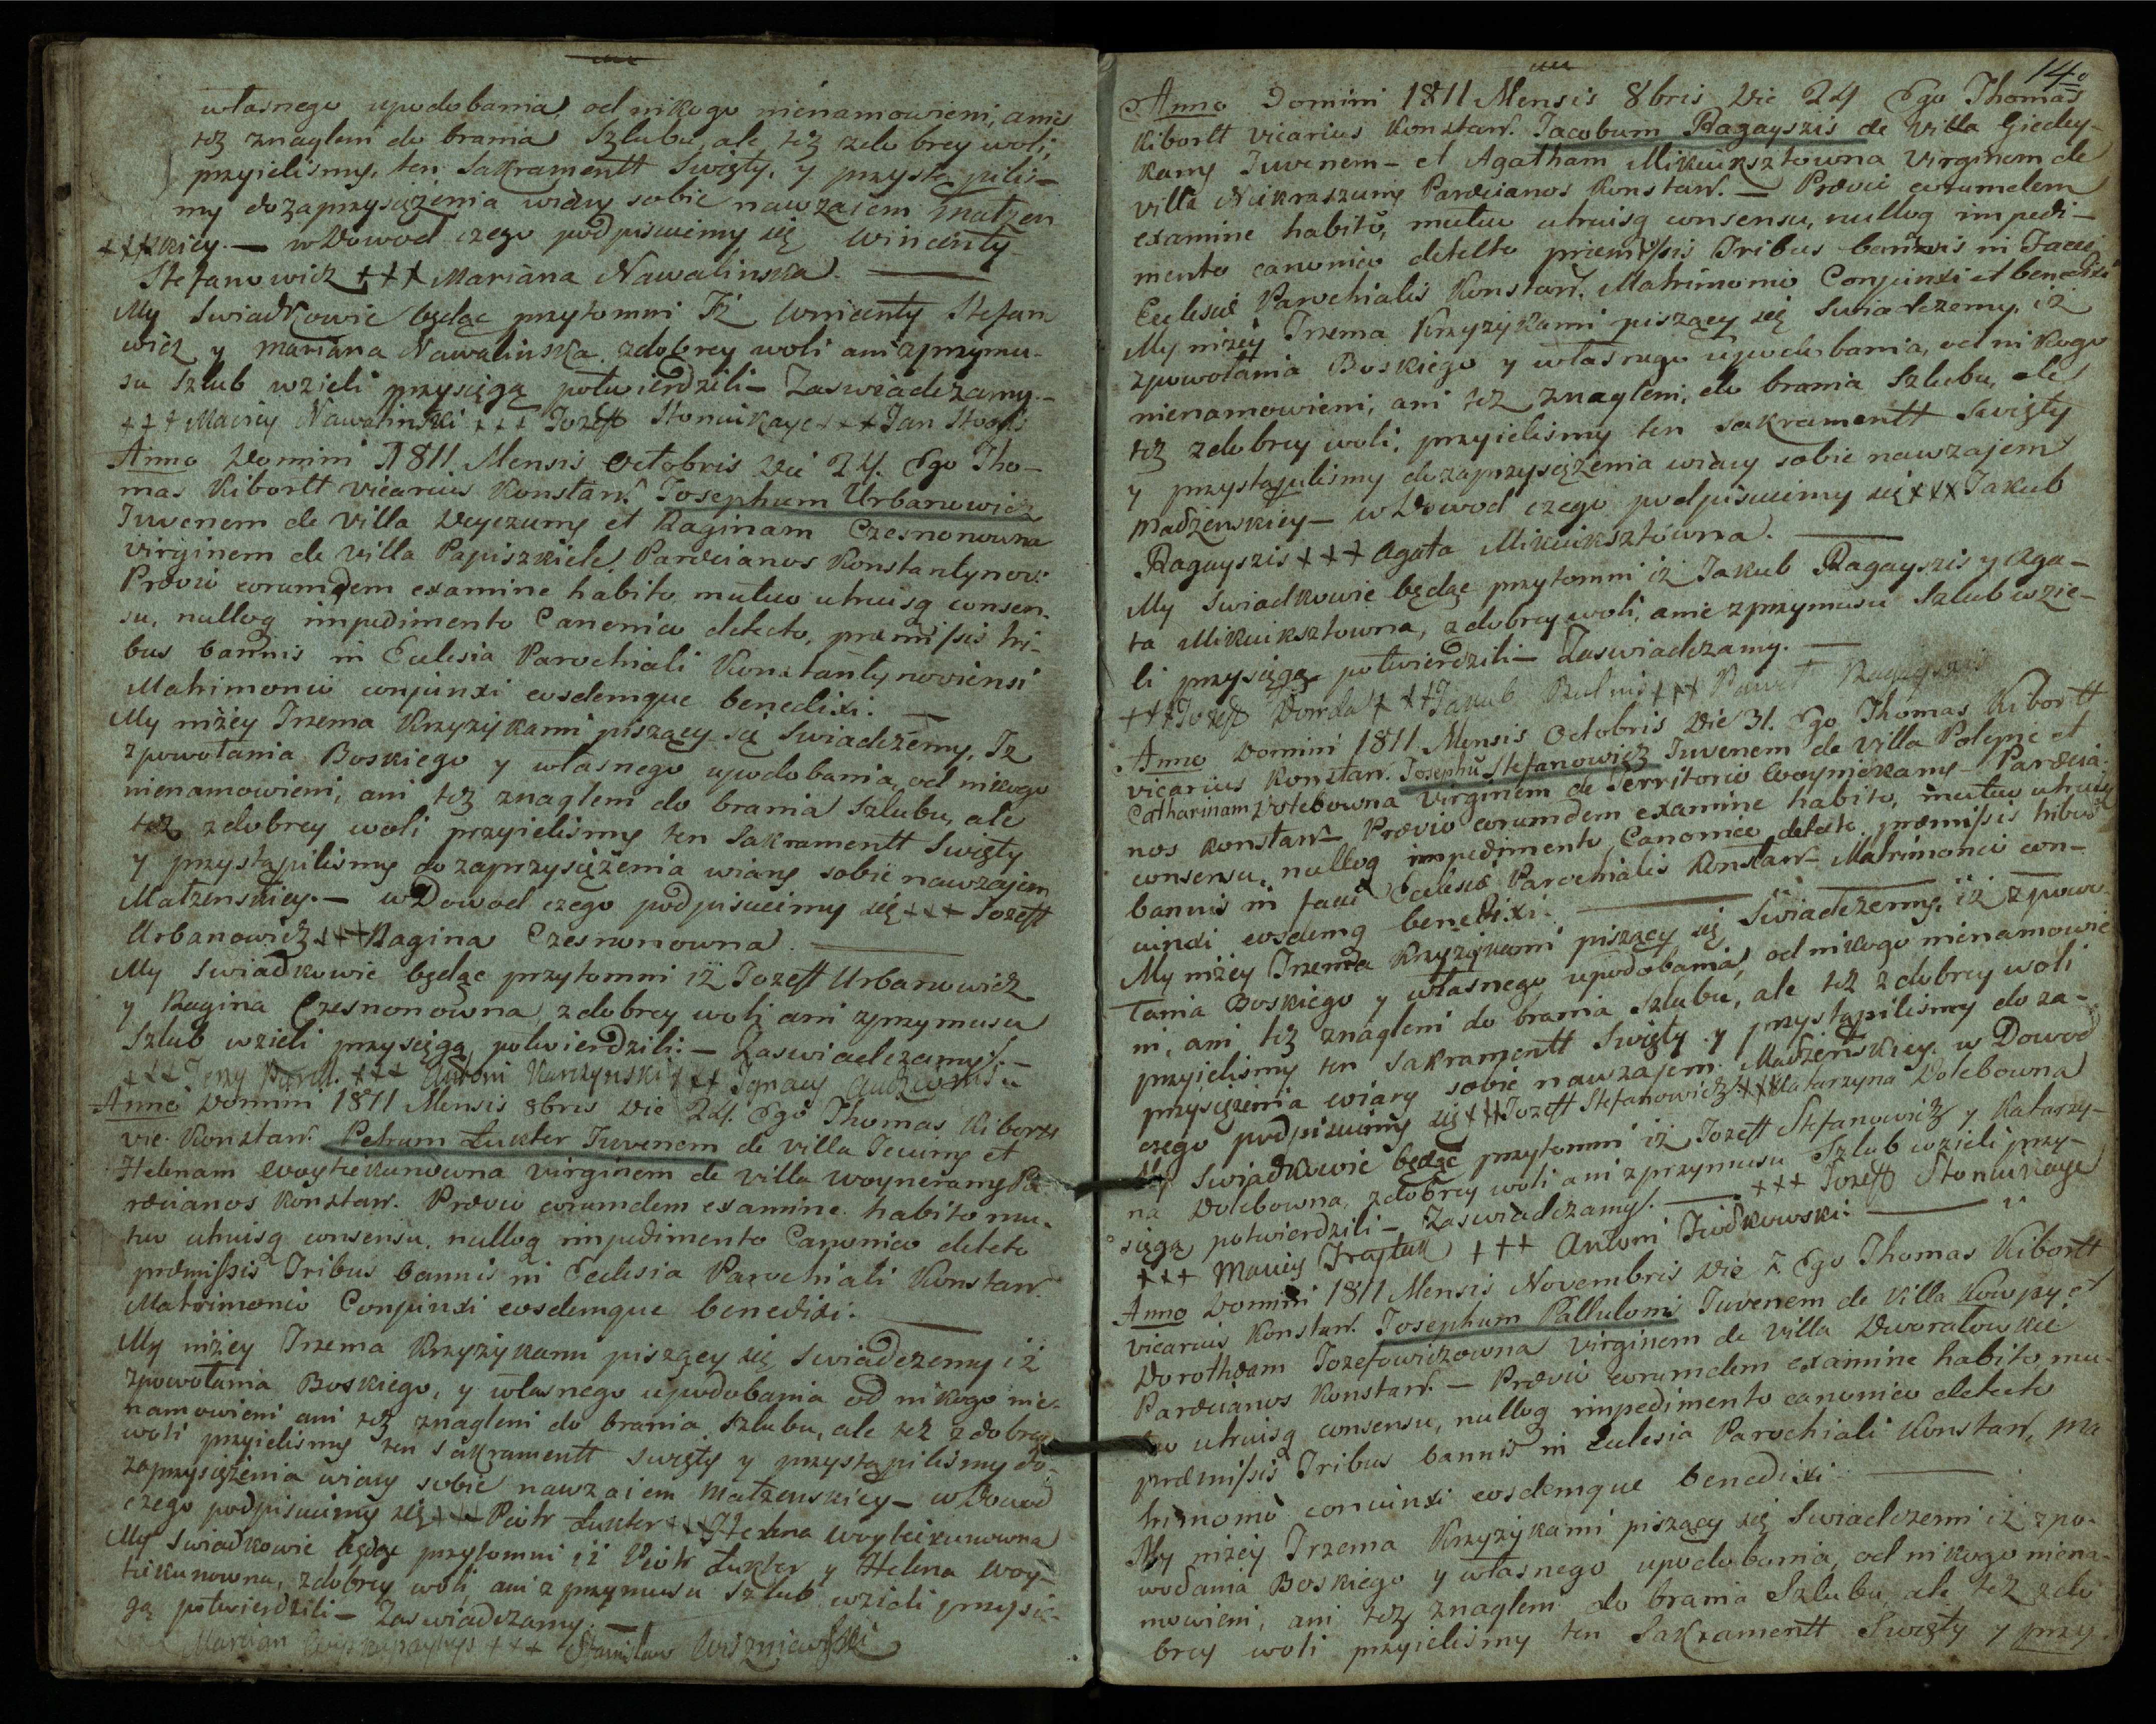 własnego upodobania, od nikogo nienamowieni, anis
też znagleni do brania Szlubu ale też zdo brey woli,
przyielismy, ten Sakramentt Swięty, y przystąpilis-
my do zaprzysiężenia wiary sobie nawzaiem małzen
+++skiey. — w Dowod czego podpisuiemy się Wincenty
Stefanowicz +++ Mariana Nawalinska. —
My Swiadkowie będąc przytomni Iż Wincenty Stefan
wicz y Mariana Nawalinska zdobrey woli ani zprzymu-
su Szlub wzieli przysięgą potwierdzili — Zaswiadczamy.—
+++ Maciey Nawalinski +++ Jozeff Stonuikayc +++ Jan
Anno Domini 1811. Mensis Octobris Die 24. Ego Tho-
mas Kibortt vicarius Konstan. Josephum Urbanowicz
Iuvenem de Villa Deyczumy et Raginam Czesnonowna
virginem de Villa Papiszkiele Paroecianos Konstantynov:
Proevio eorumdem examine habito mutuo utriusq consen-
su, nulloq impedimento Canonico detecto, premissis tri-
bus bannis in Eclesia Parochiali Konstantynoviensi
Matrimonio conjunxi eosdemque benedixi. —
My niżey Trzema Krzyzykami piszący się Swiadczemy, Iz
zpowołania Boskiego y własnego upodobania, od nikogo
nienamowieni, ani też znagleni do brania Szlubu, ale
też zdobrey woli przyielismy ten Sakramentt Swięty
y przystąpilismy do zaprzysiężenia wiary sobie nawzajem
Małzenskiey. — w Dowod czego podpisuiemy się +++ Jozeff
Urbanowicz +++ Ragina Czesnonowna. —
My Swiadkowie będąc przytomni iż Jozeff Urbanowicz
y Ragina Czesnonowna, zdobrey woli ani zprzymusu
Szlub wzieli przysięgą potwierdzili. — Zaswiadczamy. —
+++ Jerzy +++ Antoni Karczynski +++ Ignacy
Anno Domini 1811 Mensis 8bris Die 24. Ego Thomas Kibortt
vic. Konstan. Petrum Łukter Iuvenem de villa Jeuiny et
Helenam Woytiekunowna virginem de villa Woynerany Pa
rœcianos Konstan. Proevio eorumdem examine habito mu-
tuo utriusq consensu, nulloq impedimento Canonico detecto
præmissis Tribus bannis in Eclesia Parochiali Konstan.
Matrimonio Conjunxi eosdemque benedixi. —
My niżey Trzema Krzyzykami piszący się Swiadczemy iż
zpowołania Boskiego, y własnego upodobania od nikogo nie-
namowieni ani też znagleni do brania Szlubu, ale też zdobrey
woli przyielismy ten Sakramentt Swięty y przystąpilismy do
zaprzysiężenia wiary sobie nawzaiem Małzenskiey — w Dowod
czego podpisuiemy się +++ Piotr Łukter +++ Helena Woytiekunowna
My Swiadkowie będąc przytomni iż Piotr Łukter y Helena Woy-
tiekunowna, zdobrey woli, ani zprzymusu Szlub wzieli przysię-
gą potwierdzili — Zaswiadczamy. —
Marcian +++ Stanisław Wiszniewski
140
Anno Domini 1811 Mensis 8bris Die 24 Ego Thomas
Kibortt vicarius Konstan. Jacobum Ragayszis de Villa Giedey-
kany Iuvenem — et Agatham Mikuiksztowna Virginem de
villa Nukraszuny Paroecianos Konstan. — Proevio eorumdem
examine habito, mutuo utriusq consensu, nulloq impedi-
mento canonico detecto præmissis Tribus bannis in Facie
Eclesiæ Parochialis Konstan. Matrimonio Conjunxi et benedixi
My niżey Trzema Krzyzykami piszący się Swiadczemy, iż
zpowołania Boskiego y własnego upodobania, od nikogo
nienamowieni, ani też znagleni, do brania Szlubu, ale
też zdobrey woli, przyielismy ten sakramentt Swięty
y przystąpulismy dozaprzysiężenia wiary sobie nawzajem
Madżenskiey — w Dowod czego podpisuiemy się +++ Jakub
Ragayszis +++ Agata Mikuiksztówna. —
My Swiadkowie będąc przytomni iż Jakub Ragayszis y Aga-
ta Mikuiksztowna, zdobrey woli, anie zprzymusu Szlub wzie-
li przysięgą potwierdzili — Zaswiadczamy. —
+++ Jozeff Dowda +++ Jakub +++ Paweł Ragayszis
Anno Domini 1811. Mensis Octobris Die 31. Ego Thomas Kibortt
vicarius Konstan. Josephū Stefanowicz Iuvenem de Villa Polepie et
Catharinam Dolebowna Virginem de Territorio Woyniekany — Paroecia-
nos Konstan — Proevio eorumdem examine habito, mutuo utriusq
consensu, nulloq impedimento Canonico detecto præmissis tribus
bannis in facie Eclesiæ Parochialis Konstan — Matrimonio con-
iunxi eosdemq benedixi. —
My niżey Trzema Krzyzykami piszący się Swiadczemy, iż zpowo-
łania Boskiego y własnego upodobania, od nikogo nienamowie
ni, ani też znagleni do brania Szlubu, ale też zdobrey woli
przyielismy ten Sakramentt Swięty y przystąpilismy do za-
przysiężenia wiary sobie nawzajem Madżeńskiey w Dowod
czego podpisuiemy się +++ Jozeff Stefanowicz +++ Katarzyna Dolebowna
My Swiadkowie będąc przytomni iż Jozeff Stefanowicz y Katarzy-
na Dolebowna, zdobrey woli ani zprzymusu Szlub wzieli przy-
sięgą potwierdzili — Zaswiadczamy. — +++ Jozeff Stonuikayc
+++ Maciey Traytak +++ Antoni Judkowski. —
Anno Domini 1811 Mensis Novembris Die 7 Ego Thomas Kibortt
vicarius Konstan. Josephum Palluloni Iuvenem de Villa Kowpzy et
Dorotheam Jozefowiczowna virginem de Villa Dworatowskie
Paroecianos Konstan. — Proevio eorumdem examine habito, mu-
tuo utriusq consensu, nulloq impedimento canonico detecto
præmissis Tribus bannis in Eclesia Parochiali Konstan, Ma
trimonio coniunxi eosdemque benedixi —
My niżey Trzema Krzyzykami piszący się Swiadczemi iż zpo-
wołania Boskiego y własnego upodobania, od nikogo niena-
mowieni, ani też znagleni do brania Szlubu, ale też zdo
brey woli przyielismy ten Sakramentt Swięty y przy